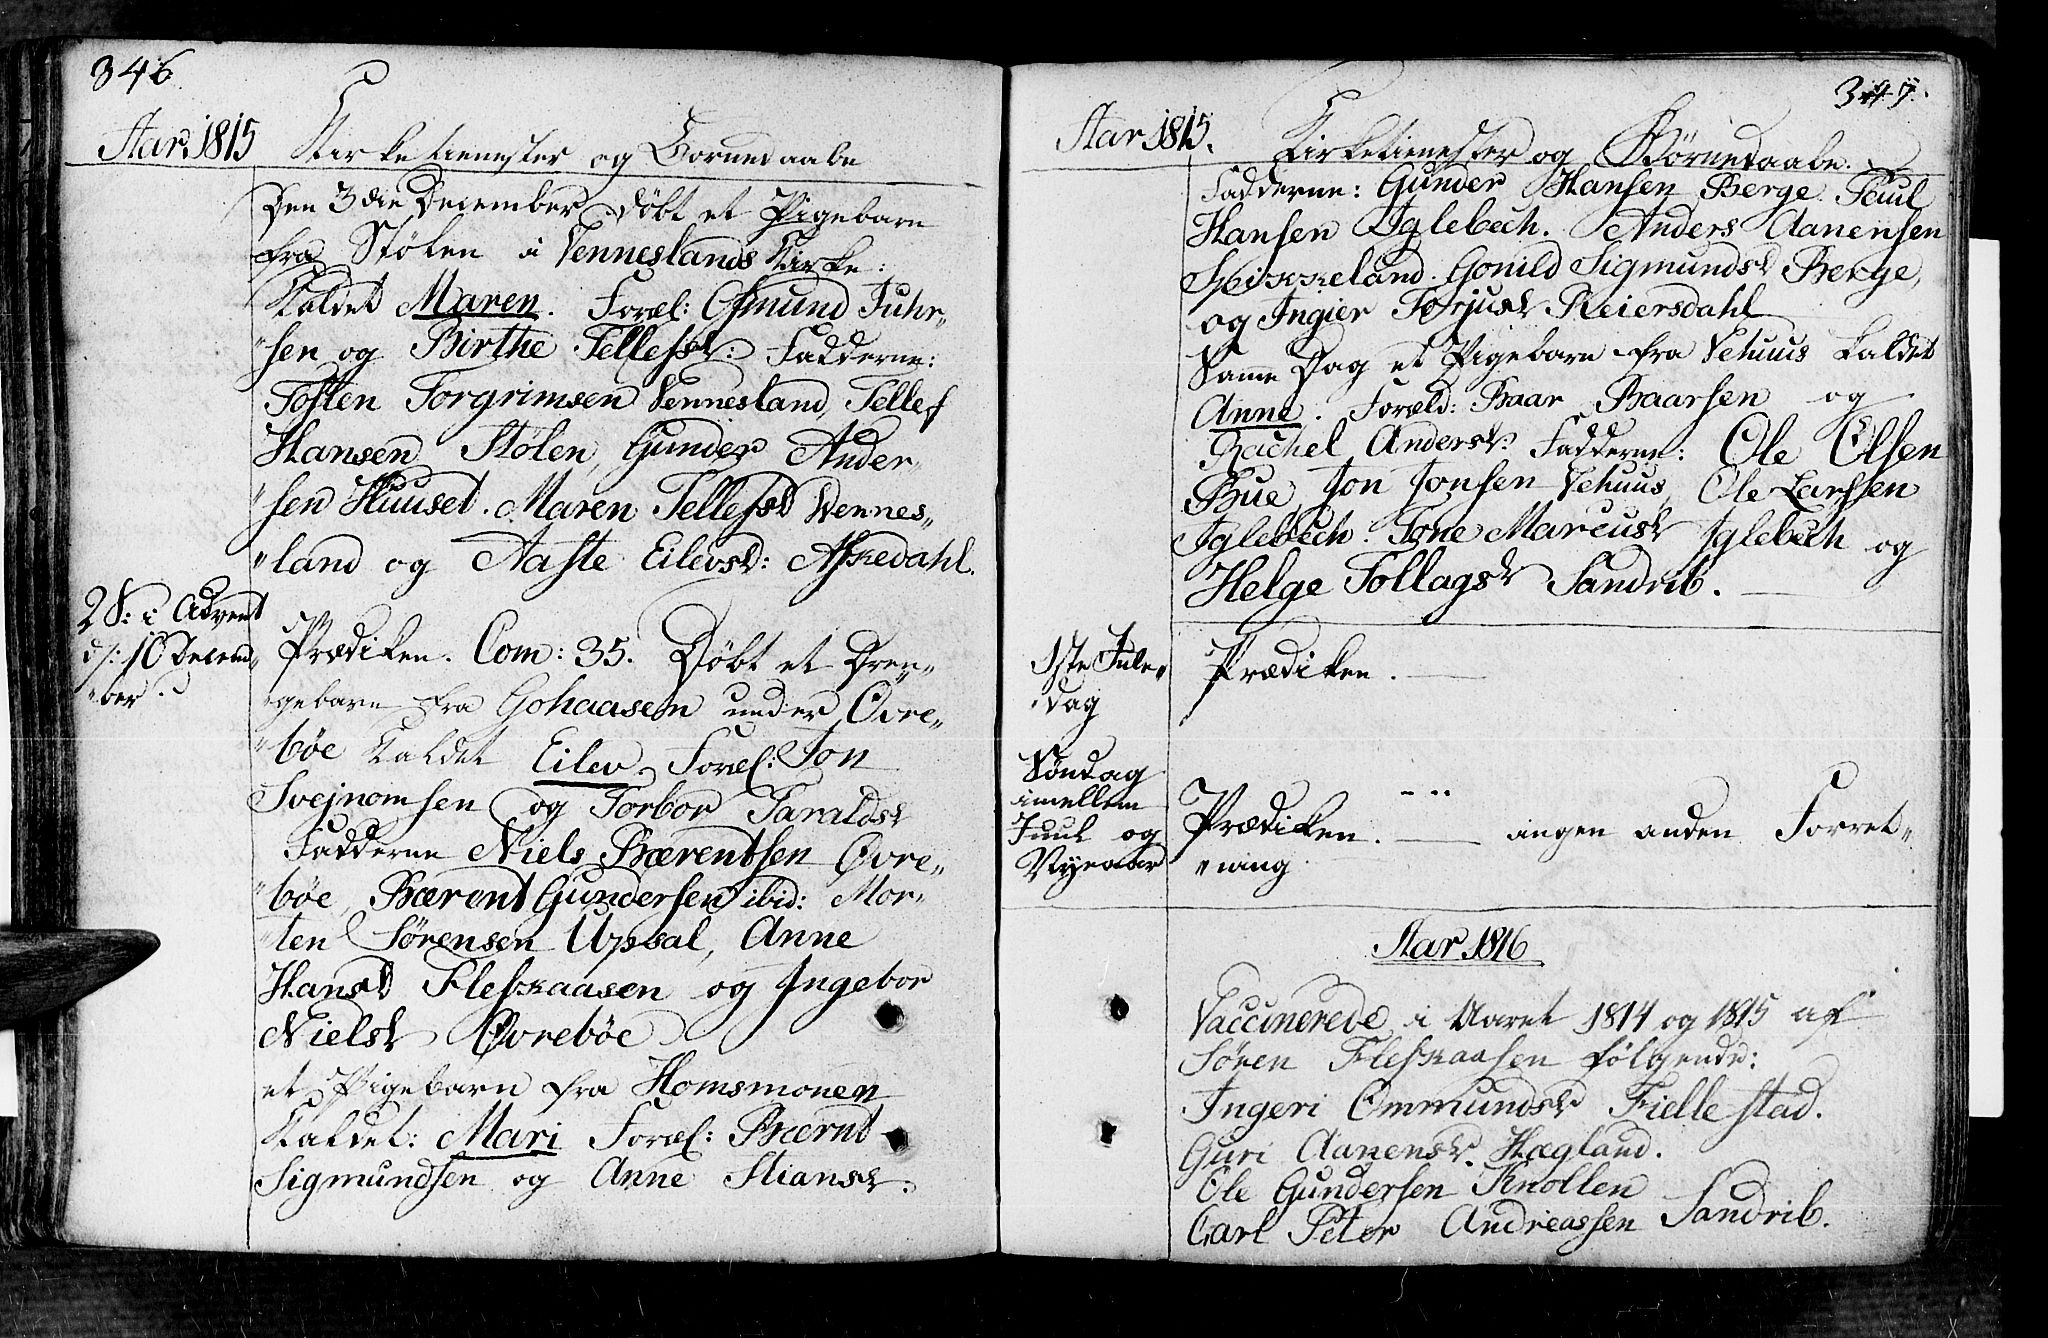 346
Aar 1815 Kirketienester og Børnedaabe
Den 3die December døbt et Pigebarn
fra Stølen i Venneslands Kirke:
Kaldet Maren. Foræl: Osmund Juhr„
„sen og Birthe Tellefsd: Fadderne:
Tosten Torgrimsen Vennesland, Tellef
Hansen Stølen, Gunder Ander„
„sen Huuset. Maren Tellefsd Vennes„
„land og Aaste Eilevsd: Askedahl.
2 S: i Advent
d/: 10 Decem„
„ber.
Prædiken. Com: 35. Døbt et Dren„
„gebarn fra Gohaasen under Øvre„
„bøe Kaldet Eilev. Foræl: Jon
Svejnomsen og Torbor Taraldsd
Fadderne Niels Bærentsen Øvre„
„bøe, Bærent Gundersen ibid: Mor„
„ten Sørensen Upsal, Anne
Hansd Fleskaasen og Ingebor
Nielsd Øvrebøe
et Pigebarn fra Homsmonen
Kaldet: Mari Foræl: Bærnt
Sigmundsen og Anne Stiansd:
347.
Aar 1815. Kirketienester og Børnedaabe.
Fadderne: Gunder Hansen Berge. Paul
Hansen Iglebech. Anders Aanensen
Homkeland. Gonild Sigmundsd Berge,
og Ingier Torjusd Reiersdahl
Samme Dag et Pigebarn fra Vehuus kaldet
Anne. Foræld: Baar Baarsen og
Rachel Andersd. Fadderne: Ole Olsen
Bue, Jon Jonsen Vehuus, Ole Larssen
Iglebech. Tone Marcusd Iglebech og
Helge Tollagsd Sandrib.
1ste Jule„
„dag
Prædiken.
Søndag
imellem
Juul og
Nyeaar
Prædiken. ingen anden Forret„
„ning.
Aar 1816
Vaccinerede i Aaret 1814 og 1815 af
Søren Fleskaasen følgende:
Ingeri Ommundsd Fiellestad.
Guri Aanensd. Hægland.
Ole Gundersen Knollen
Carl Peter Andreassen Sandrib.